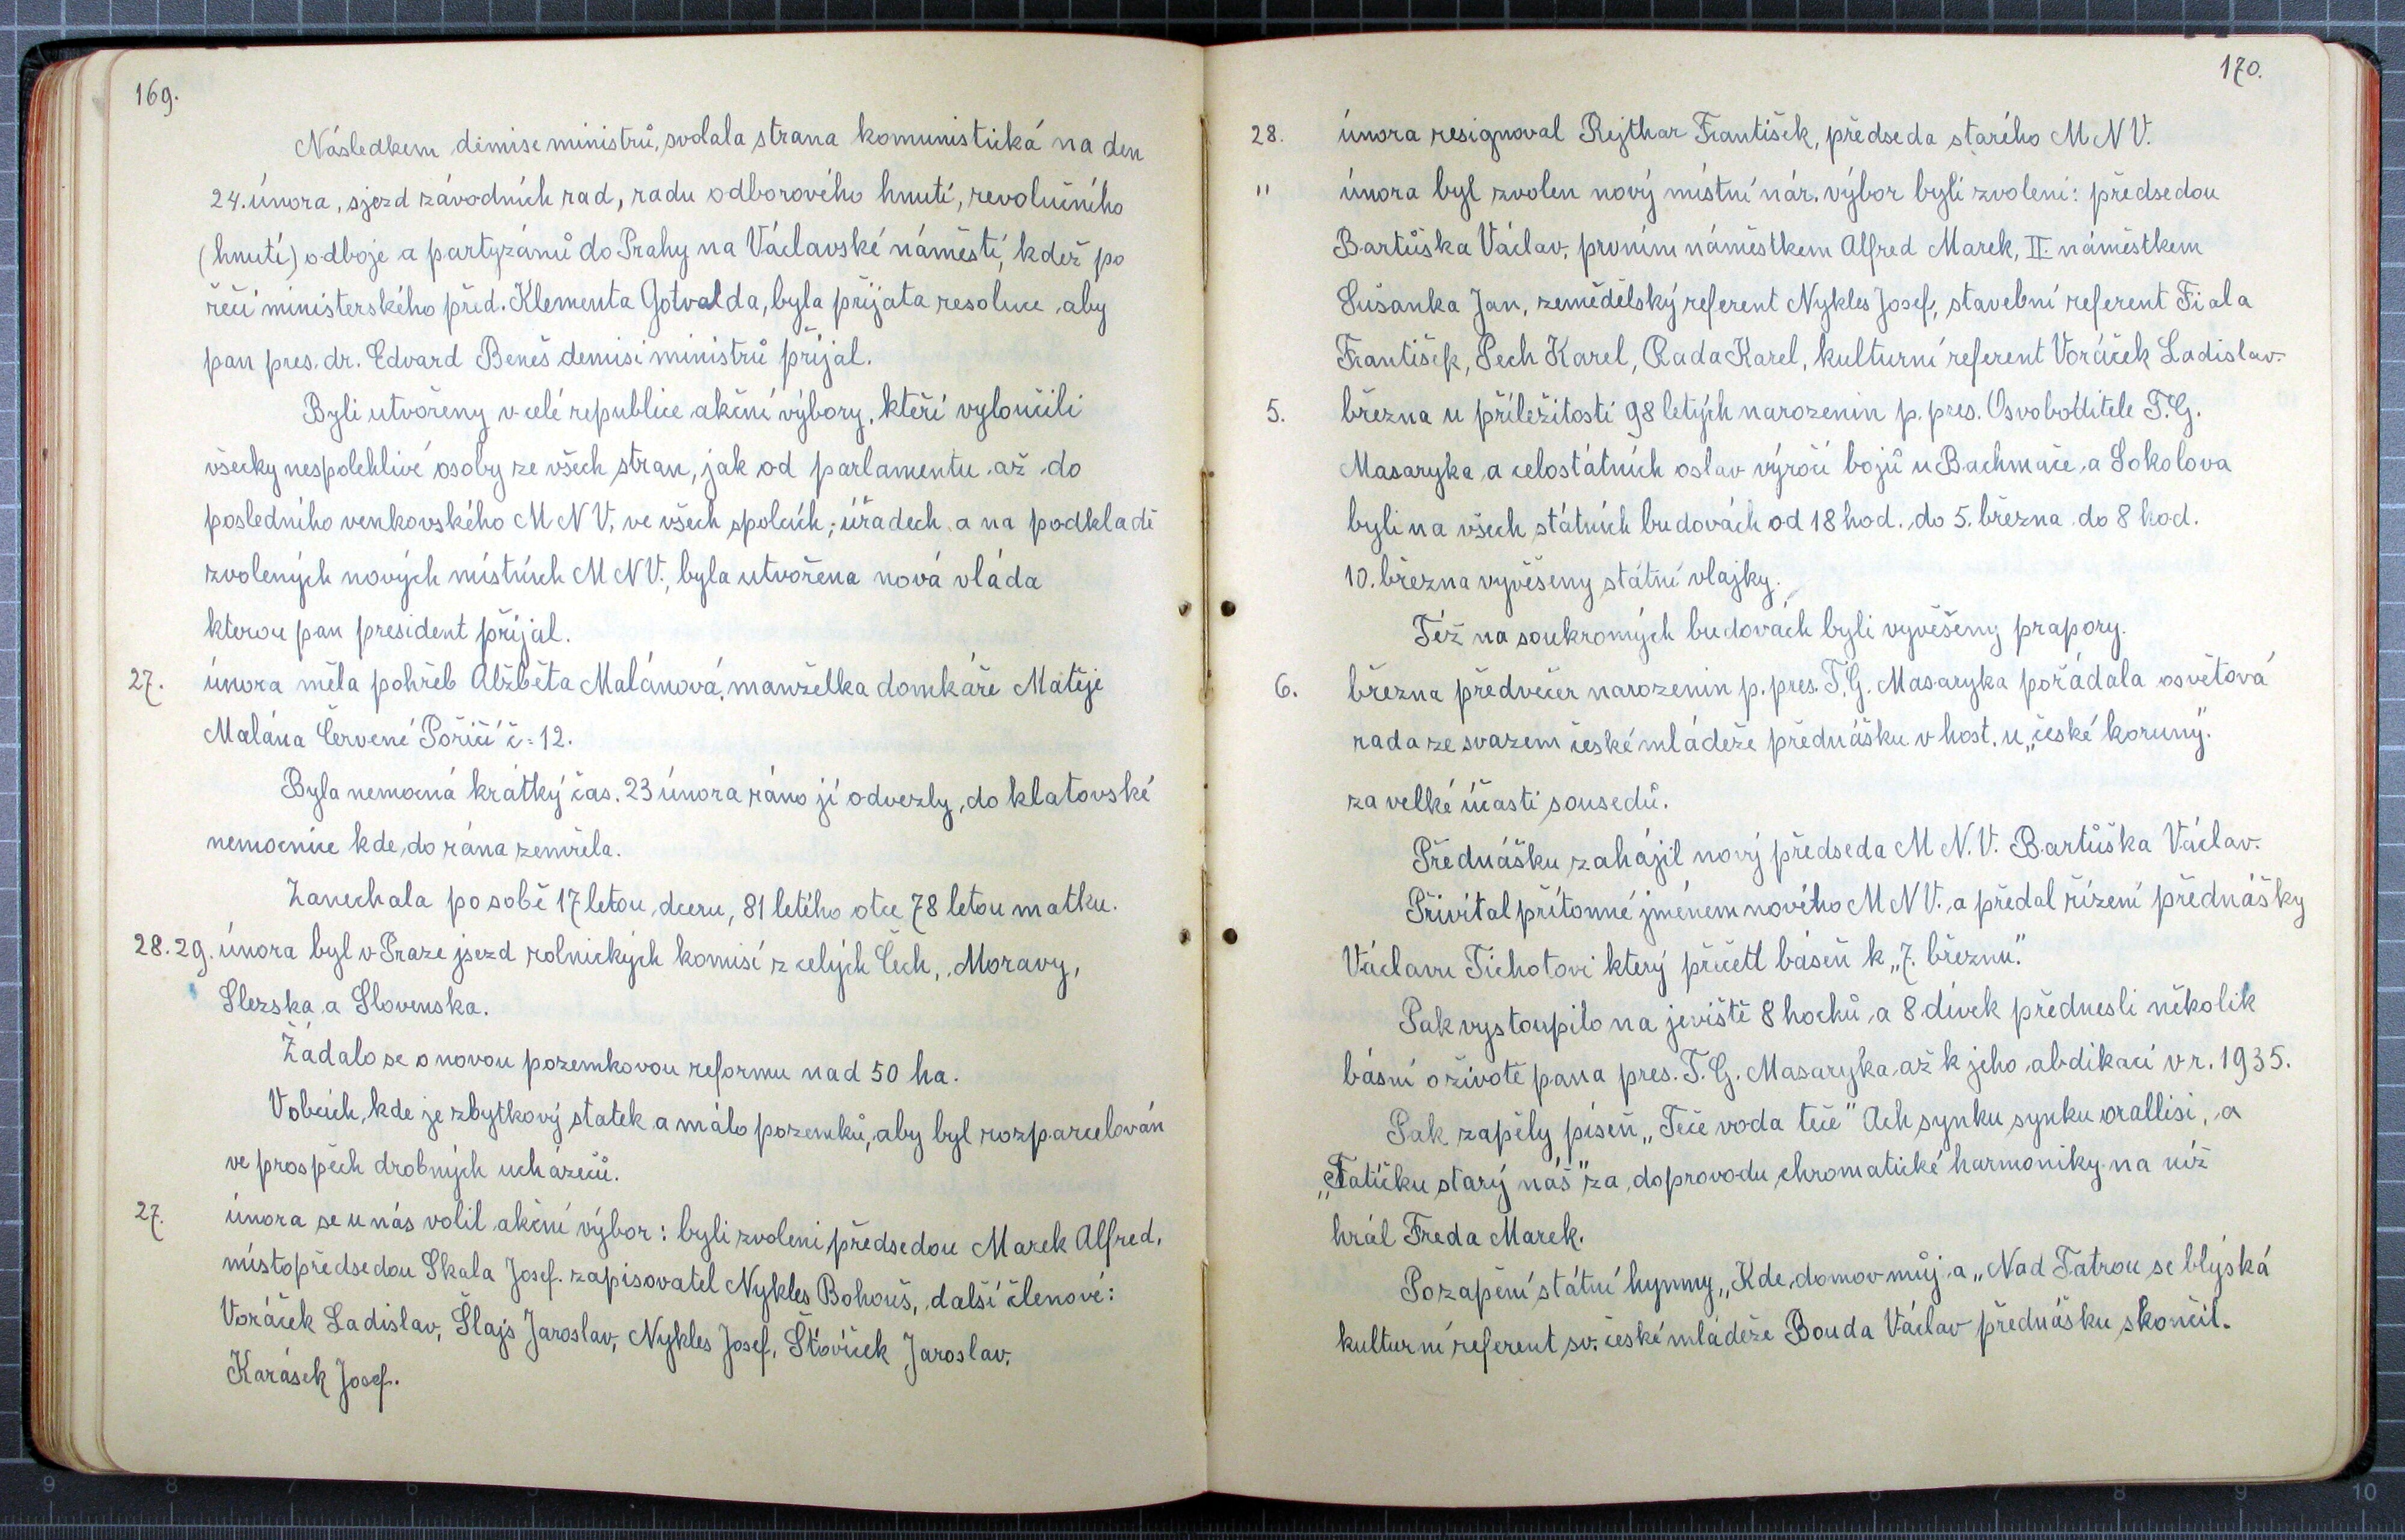 169.
Následkem demise ministrů, svolala strana komunistická na den
24. února, sjezd závodních rad, radu odborového hnutí, revolučního
(hnutí) odboje a partyzánů do Prahy na Václavské náměstí, kdež po
řeči ministerského před. Klementa Gotvalda, byla přijata resoluce, aby
pan pres. dr. Edvard Beneš demisi ministrů přijal.
Byli utvořeny v celé republice akční výbory, kteří vyloučili
všecky nespolehlivé osoby ze všech stran, jak od parlamentu až do
posledního venkovského M N V, ve všech spolcích, úřadech a na podkladě
zvolených nových místních M N V., byla utvořena nová vláda
kterou pan president přijal.
27. února měla pohřeb Alžběta Malánová, manželka domkáře Matěje
Malána Červené Poříčí č. 12.
Byla nemocná krátký čas. 23 února ráno jí odvezly, do klatovské
nemocnice kde, do rána zemřela.
Zanechala po sobě 17 letou dceru, 81 letého otce 78 letou matku.
28. 29. února byl v Praze jsezd rolnických komisí z celých Čech, Moravy,
Slezska a Slovenska.
Žádalo se o novou pozemkovou reformu nad 50 ha.
V obcích, kde je zbytkový statek a málo pozemků, aby byl rozparcelován
ve prospěch drobných ucházečů.
27. února se u nás volil akční výbor: byli zvoleni předsedou Marek Alfred,
místopředsedou Skala Josef. zapisovatel Nykles Bohouš, další členové:
Voráček Ladislav, Šlajs Jaroslav, Nykles Josef, Šťovíček Jaroslav,
Karásek Josef.
170.
28. února resignoval Rejthar František, předseda starého M N V.
" února byl zvolen nový místní nár. výbor byli zvoleni: předsedou
Bartůška Václav, prvním náměstkem Alfred Marek, II. náměstkem
Sušanka Jan, zemědělský referent Nykles Josef, stavební referent Fiala
František, Pech Karel, Rada Karel, kulturní referent Voráček Ladislav.
5. března u příležitosti 98 letých narozenin p. pres. Osvoboditele T. G.
Masaryka a celostátních oslav výročí bojů u Bachmače, a Sokolova
byli na všech státních budovách od 18 hod. do 5. března do 8 hod.
10. března vyvěšeny státní vlajky.
Též na soukromých budovách byli vyvěšeny prapory.
6. března předvečer narozenin p. pres. T. G. Masaryka pořádala osvětová
rada ze svazem české mládeže přednášku v host. u „české koruny".
za velké účasti sousedů.
Přednášku zahájil nový předseda M N. V. Bartůška Václav.
Přivítal přítomné jménem nového M N V. a předal řízení přednášky
Václavu Tichotovi který přičetl báseň k „7. březnu."
Pak vystoupilo na jeviště 8 hochů a 8 dívek přednesli několik
básní o životě pana pres. T. G. Masaryka až k jeho abdikaci v r. 1935.
Pak zapěly píseň „Teče voda teče" Ach synku synku orallisi, a
„Tatíčku starý náš" za doprovodu chromatické harmoniky na níž
hrál Freda Marek.
Po zapění státní hymny „Kde domov můj a „Nad Tatrou se blýská
kulturní referent sv. české mládeže Bouda Václav přednášku skončil.
9 8 7 6 6 7 8 9 10